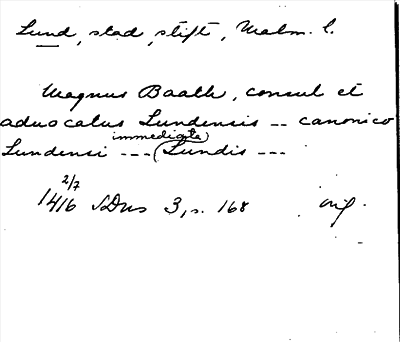 Lund, stad, stift, Malm. l.
Magnus Baath, consul et
advocatus Lundensis -- canonico
immediate
Lundensi --- (Lundis ---
2/7
1416 SDns 3, s. 168 orig.